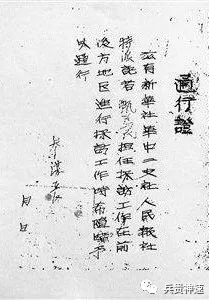 通行證
兹有新華社華中二支社人民報社
特派記者 担任採訪工作在前
後方地区進行採訪工作時希隨時予
以通行
月 日
兵贵神速